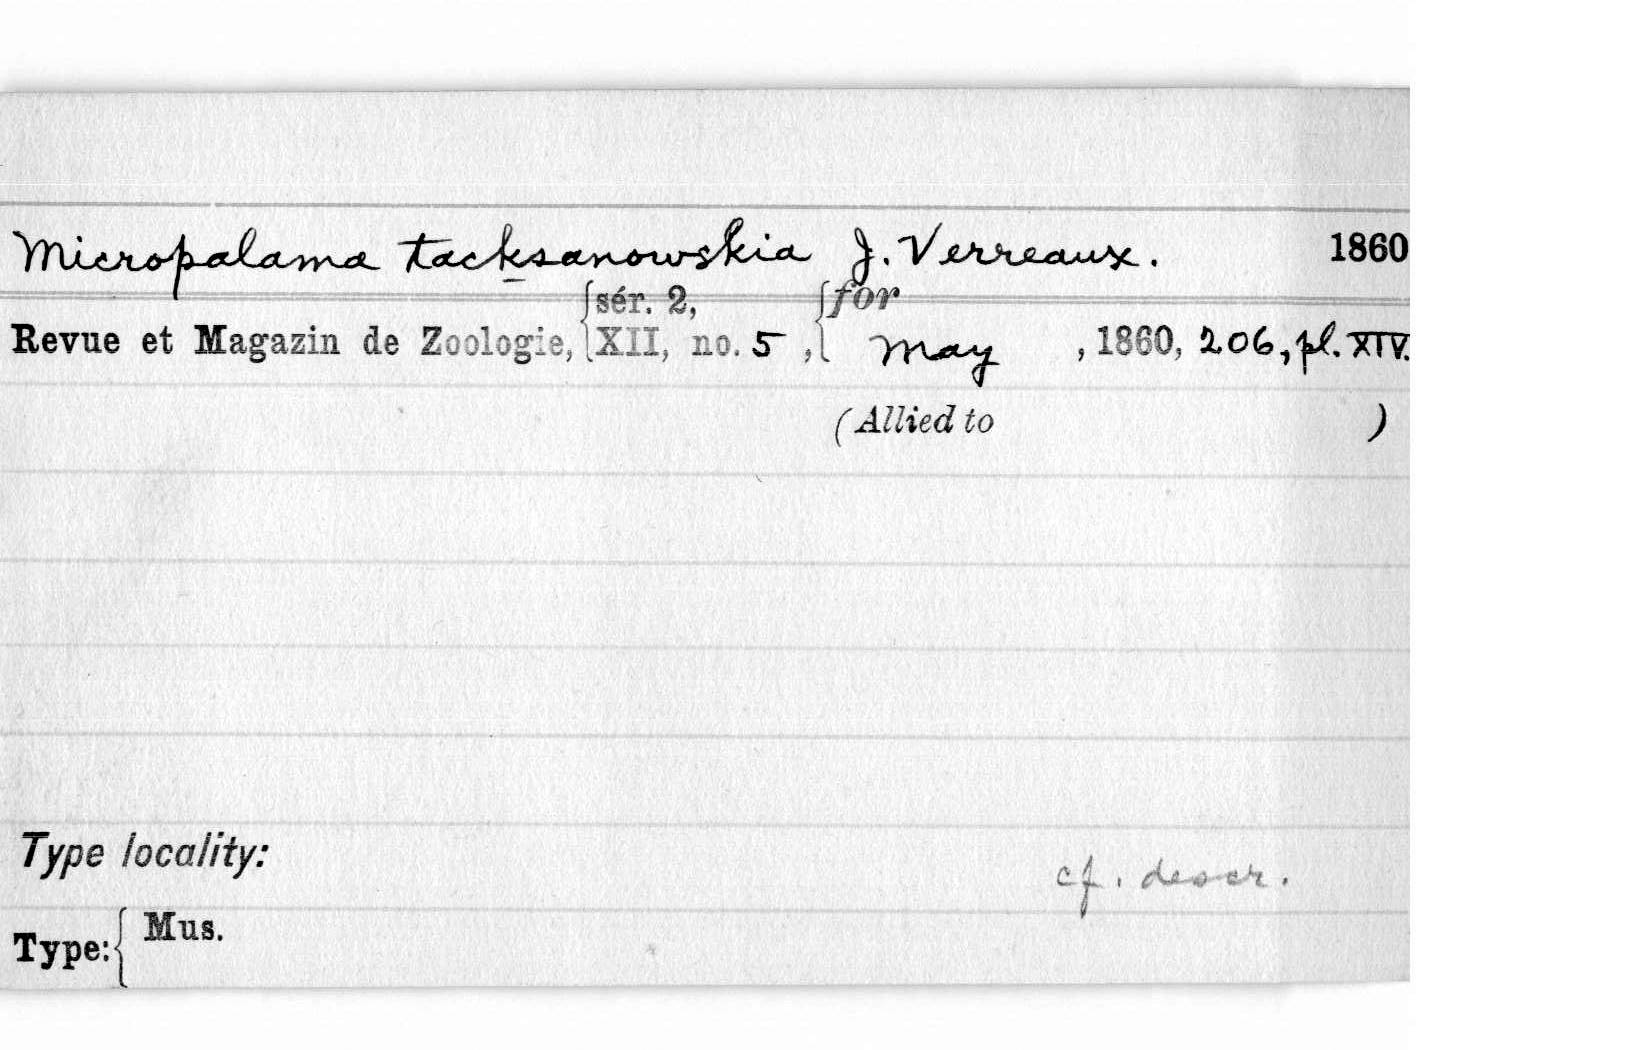 Micropalama tacksanowskia J. Verreaux. 1860
{sér. 2, {for
Revue et Magazin de Zoologie, {XII, no. 5 , { May , 1860, 206, pl. XIV.
(Allied to )
Type locality:
cf. descr.
Type: { Mus.